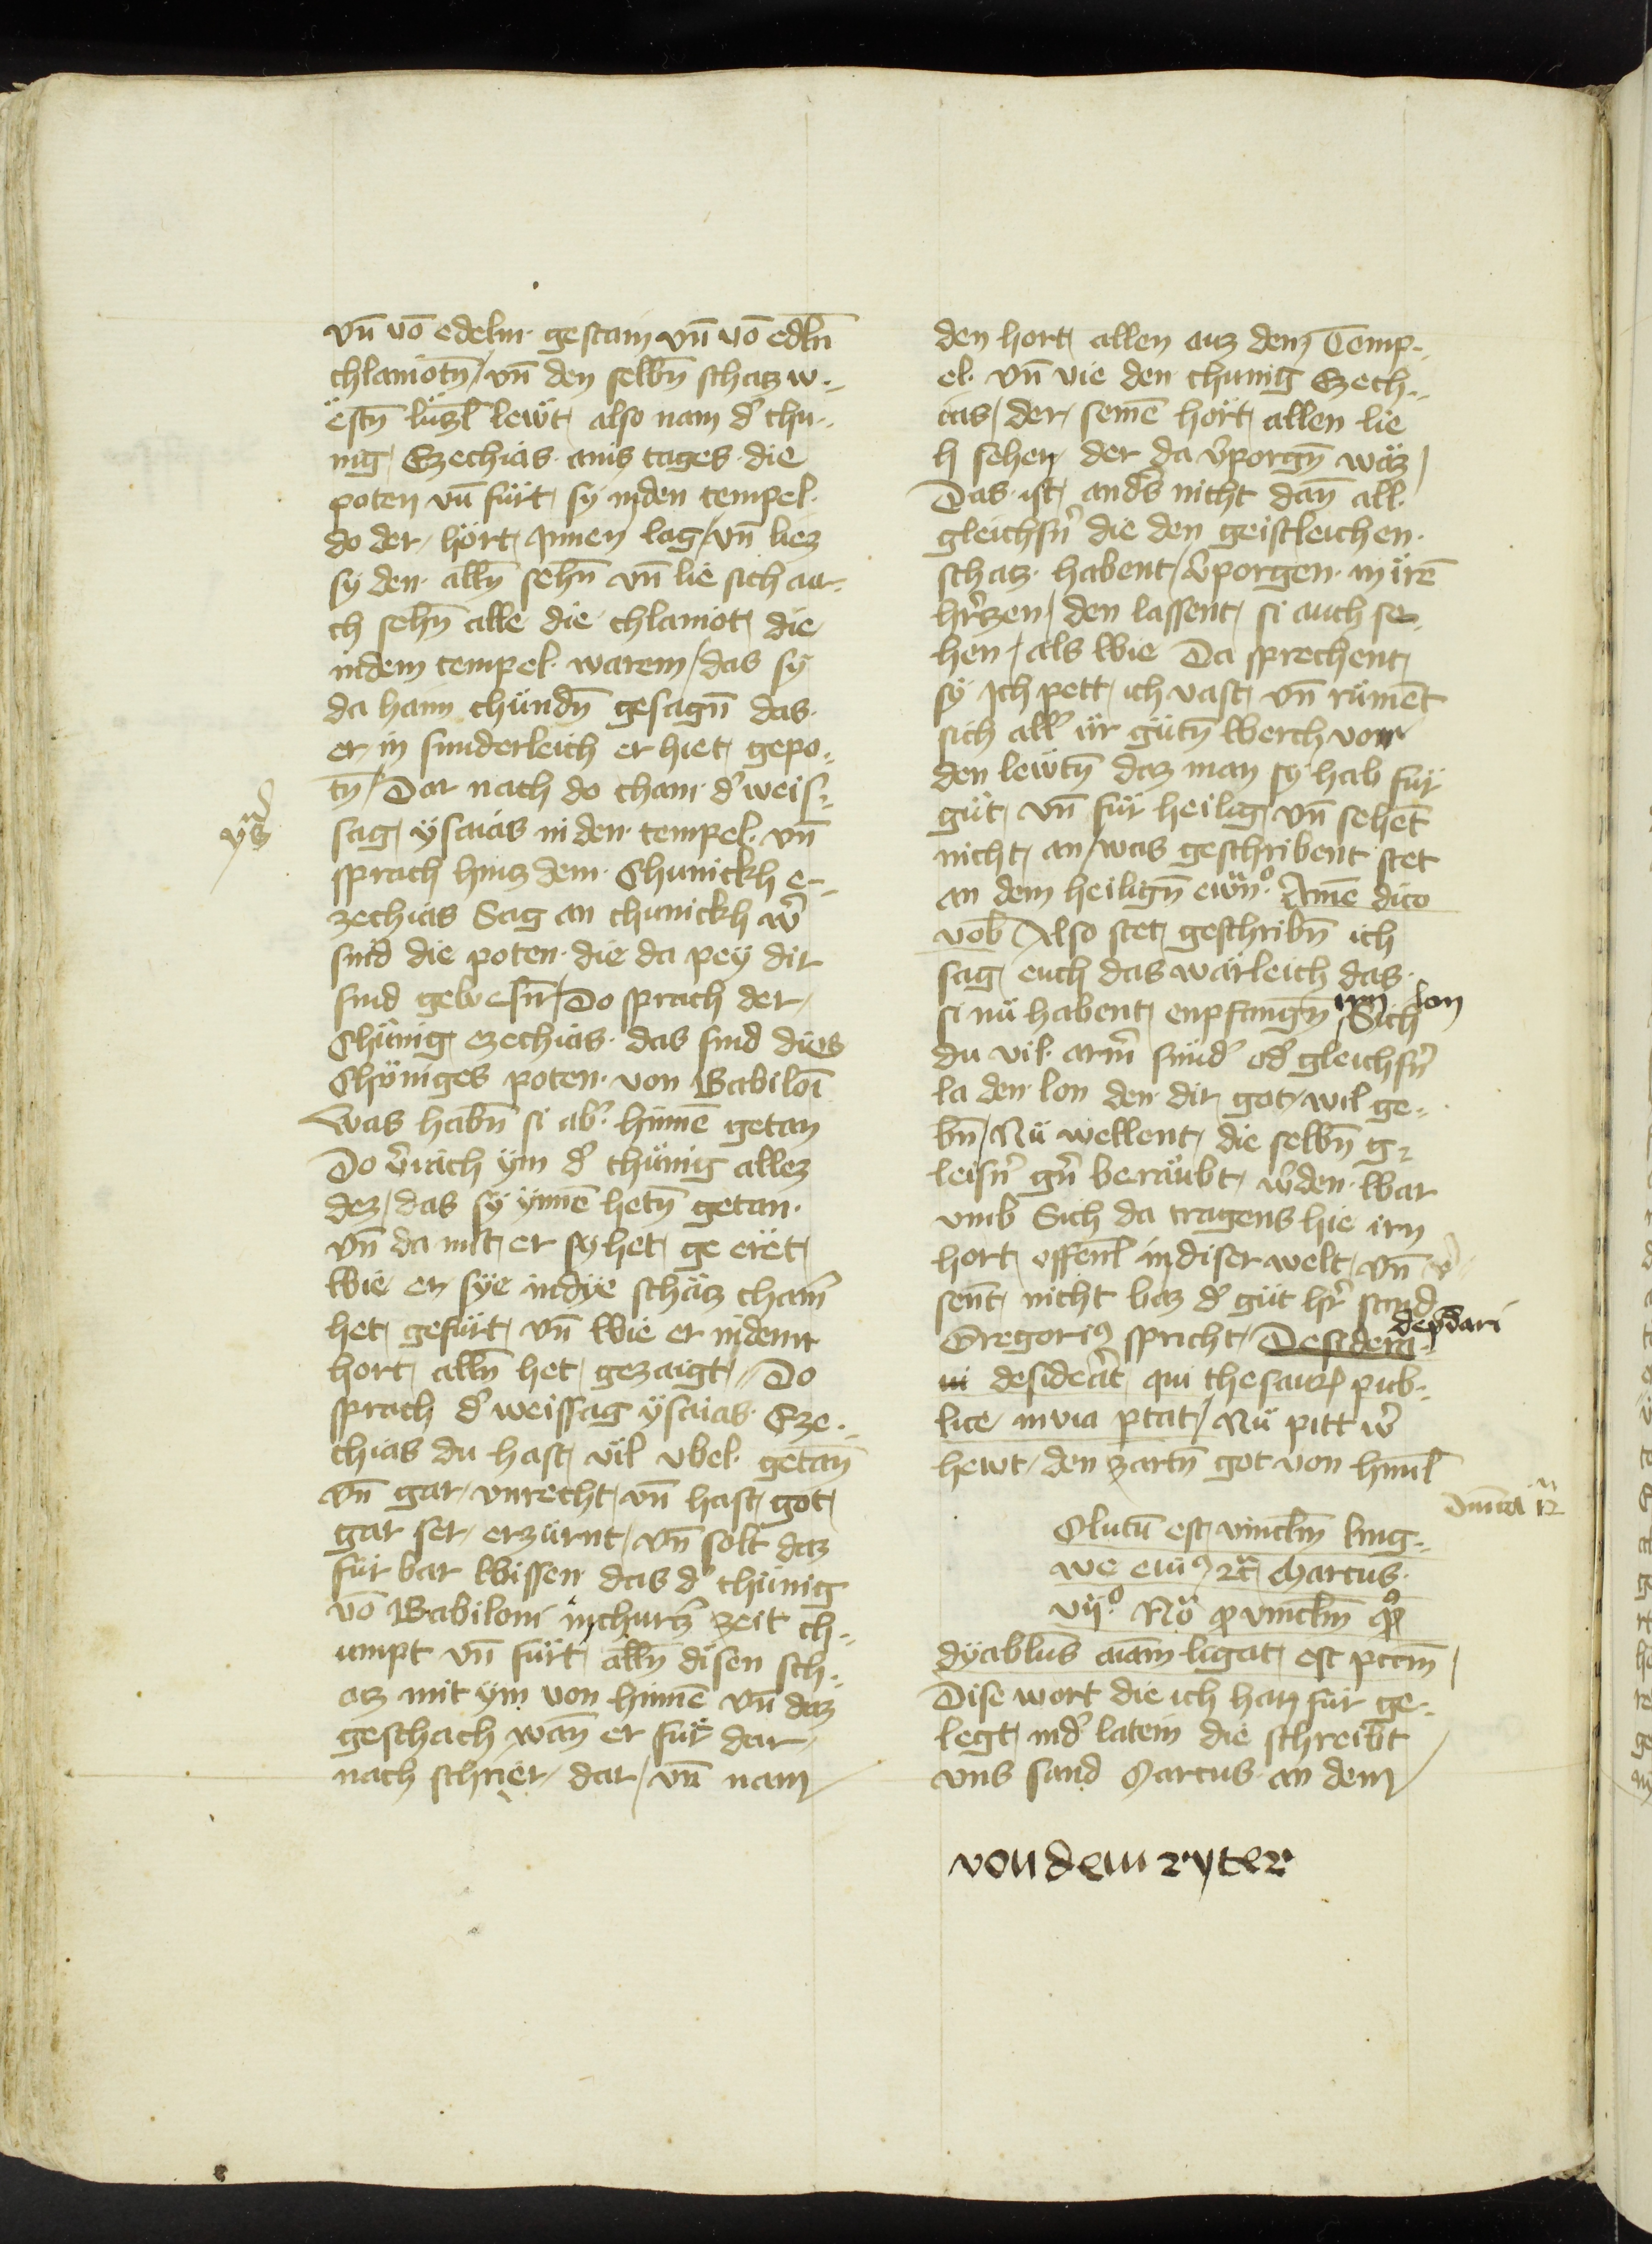 vn̄ vō edelm gestain vn̄ vō edln̄
chlaniotn̄ / vn̄ den selbn̄ schaz w„
ëstn̄ lüzl lewt also nam d' chu„
nig Ezechias ains tages die
poten vn̄ fürt sy in den tempel
do der hort Innen lag / vn̄ liez
sy den alln̄ sehn̄ vn̄ lie sich au„
ch sehn̄ alle die chlaniot die
in dem tempel warem / das sy
da haim chündn̄ gesagn̄ das
er in sunderleich er hiet gepo„
tn̄ / Dar nach do cham d' weis„
sag ysaias in den tempel vn̄
sprach hinz dem Chunickh e„
zechias Sag an chunickh w'
sind die poten die da pey dir
sind gewesn̄ / Do sprach der
Chünig ezechias das sind dies
Chöniges poten von Babiloī
Was habn̄ si ab' hinnē getan
Do v'iäch ÿm d' chünig allez
dez / das sy ynnē hetn̄ getan
vn̄ da mit er sy het ge eret
Wie er sye in dye schäz cham̄
het gefürt vn̄ Wie er in dem
hort alln̄ het gezaigt „ Do
sprach d' weissag ysaias Eze„
chias du hast vil vbel getan̄
vn̄ gar vnrecht vn̄ hast got
gar ser erzürnt vn̄ solt daz
für bar Wissen das d' chünig
vō Babiloni in churz' zeit ch„
umpt vn̄ fürt alln̄ disen sch„
az mit ym von hinnē vn̄ daz
geschach wan̄ er für dar
nach schier dar / vn̄ nam
den hort allen auz dem Temp„
el vn̄ vie den chunig Ezech„
ias / der seinē hort allen lie
h sehen der da v'porgn̄ waz /
Das ist and's nicht dan̄ all
gleichsn̄' die den geistleichen
schaz habent / v'porgen in irē
hr'zen / den lassent si auch se„
hen / als wie Da sprechent
sy Ich pett ich vast vn̄ rümēt
sich all' ir gütn̄ Werch von
den lewtn̄ daz man sy hab für
güt vn̄ für heilig vn̄ sehēt
nicht an / was geschribent stet
an dem heilign̄ ewn̄o. Amē dico
vob Also stet geschribn̄ ich
sag euch das wärleich das
si nü habent enpfangn̄ irn lon Sich
du vil arm̄' sünd' od' gleichsn̄'
la den lon den dir got wil ge„
bn̄ / Nü wellent die selbn̄ g„
leisn̄' gn̄' beräubt w'den War
vmb Sich da tragens hie irn
hort offenl in diser welt vn̄
sent nicht baz d' güt hr' sand
Gregori9 spricht / Desidera„ depdari
ui desiderat qui thesaurꝝ pub„
lice in via ptat / Nü pitt w'
hewt den zartn̄ got von himl
Dnīca 12
Olutū est vinclm̄ ling„
we eiu9 ꝛc̄ Marcus
vijo. Nō ꝓ vinclm̄ ꝙ
dyablus aīam ligat est pctm̄ /
Dise wort die ich han für ge„
legt in d' latein die schreibt
vns sand Marcus an dem
von dem ryter